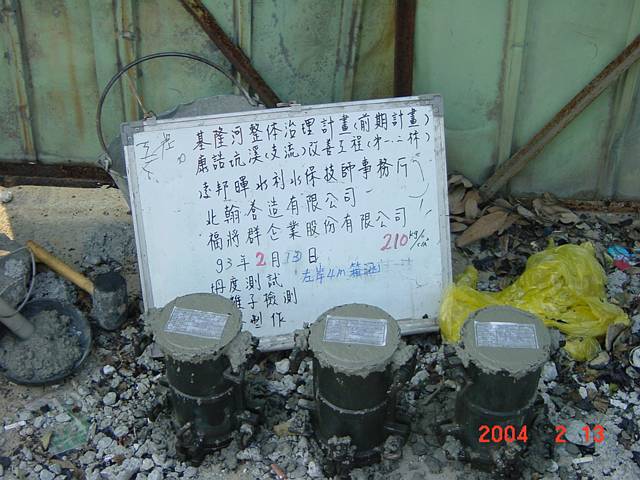 基隆河整体治理計畫(前期計畫)
康誥坑溪(支流)改善工程(
凌邦暉水利水保技師事務所
北翰營造有限公司
福將群企業股份有限公司
93年2月13日
210 kg/cm²
左岸4m箱涵
坍度測試
離子檢測
製作
2004 2 13